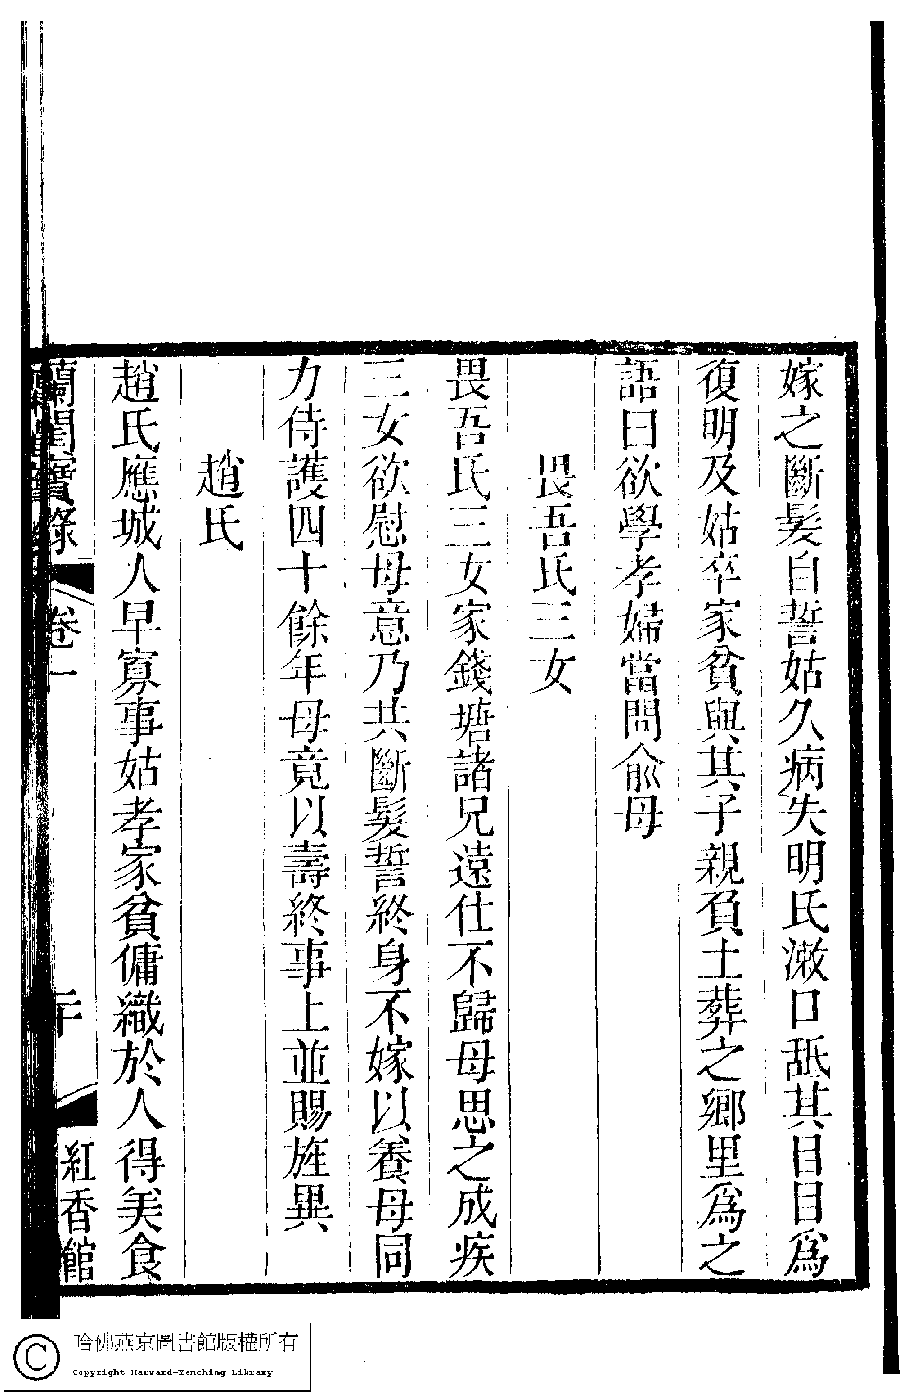 嫁之斷髮自誓姑久病失明氏漱口舐其目目爲
復明及姑卒家貧與其子親負土葬之鄉里爲之
語曰欲學孝婦當問俞母
畏吾氏三女
畏吾氏三女家錢塘諸兄遠仕不歸母思之成疾
三女欲慰母意乃共斷髮誓終身不嫁以養母同
力侍護四十餘年母竟以壽終事上並賜旌異
趙氏
趙氏應城人早寡事姑孝家貧傭織於人得美食
蘭閨寶錄
卷一
紅香館
哈佛燕京圖書館版權所有
Copyright Harvard-Yenching Library